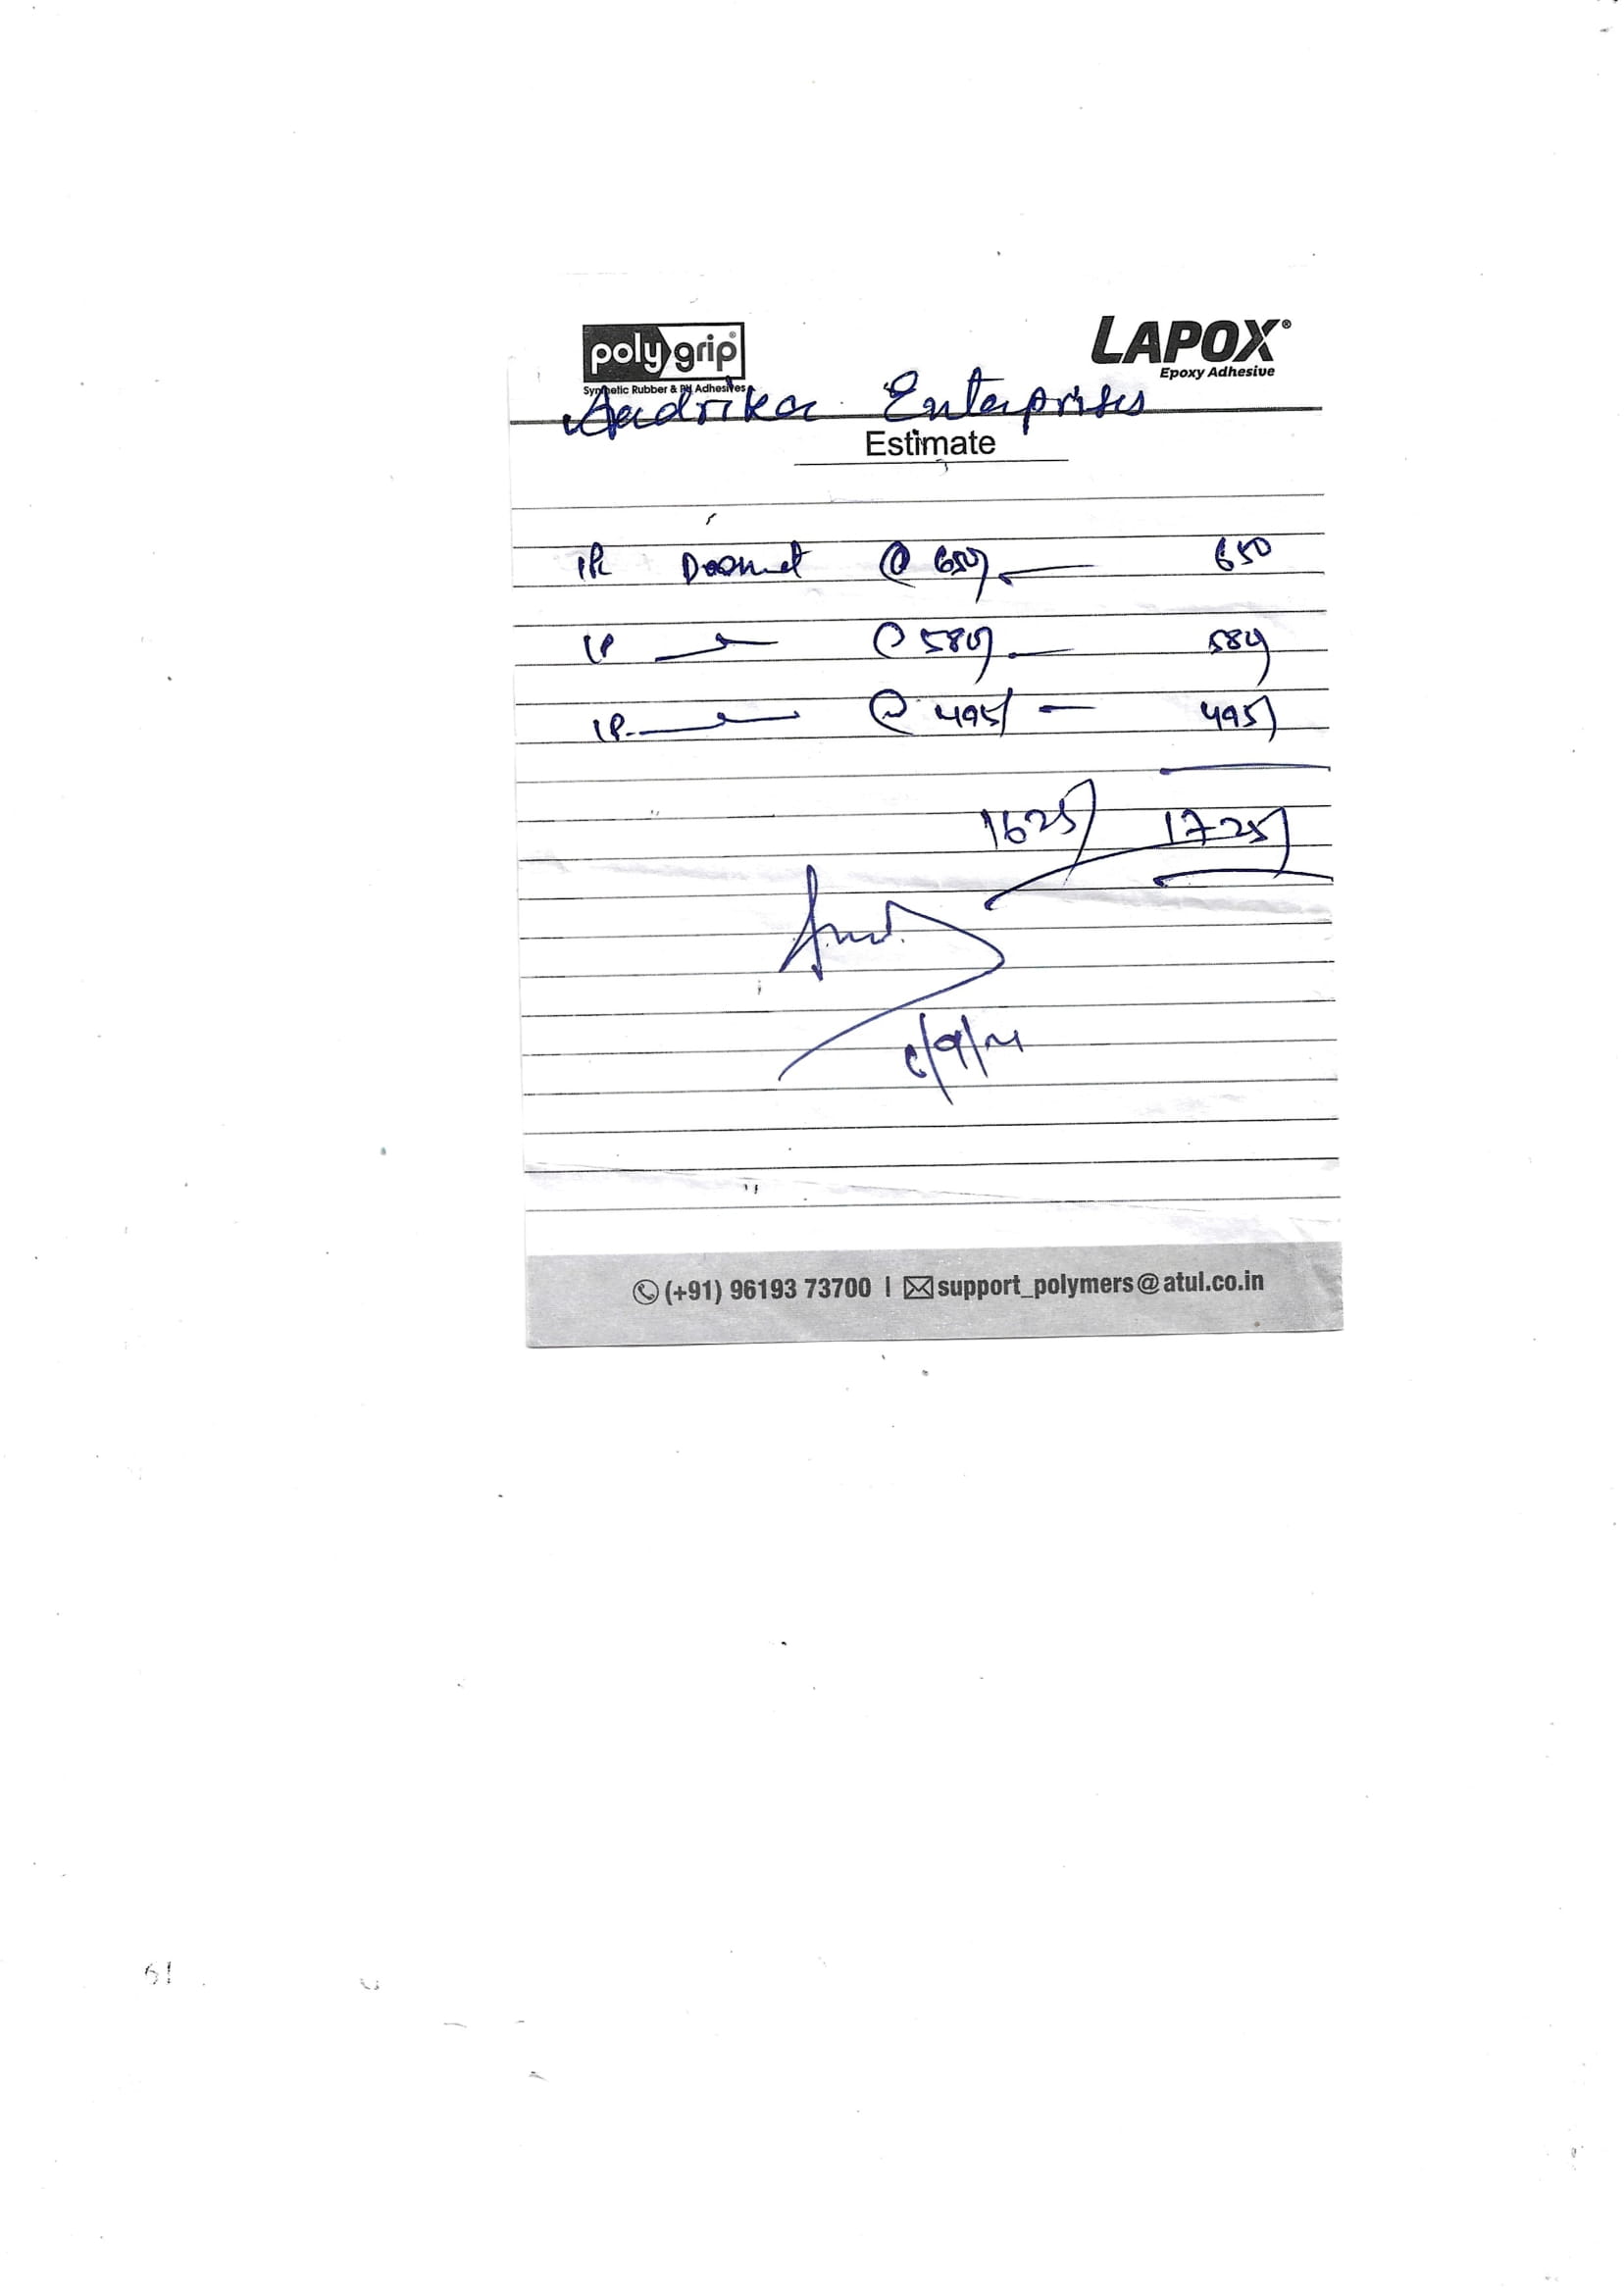 polygrip®
Synthetic Rubber & PU Adhesives
LAPOX®
Epoxy Adhesive
Aadrika Enterprises
Estimate
@ 650/ — 650
@ 580/ — 580/
@ 495/ — 495/
1625/ 1725/
(+91) 96193 73700 | support_polymers@atul.co.in